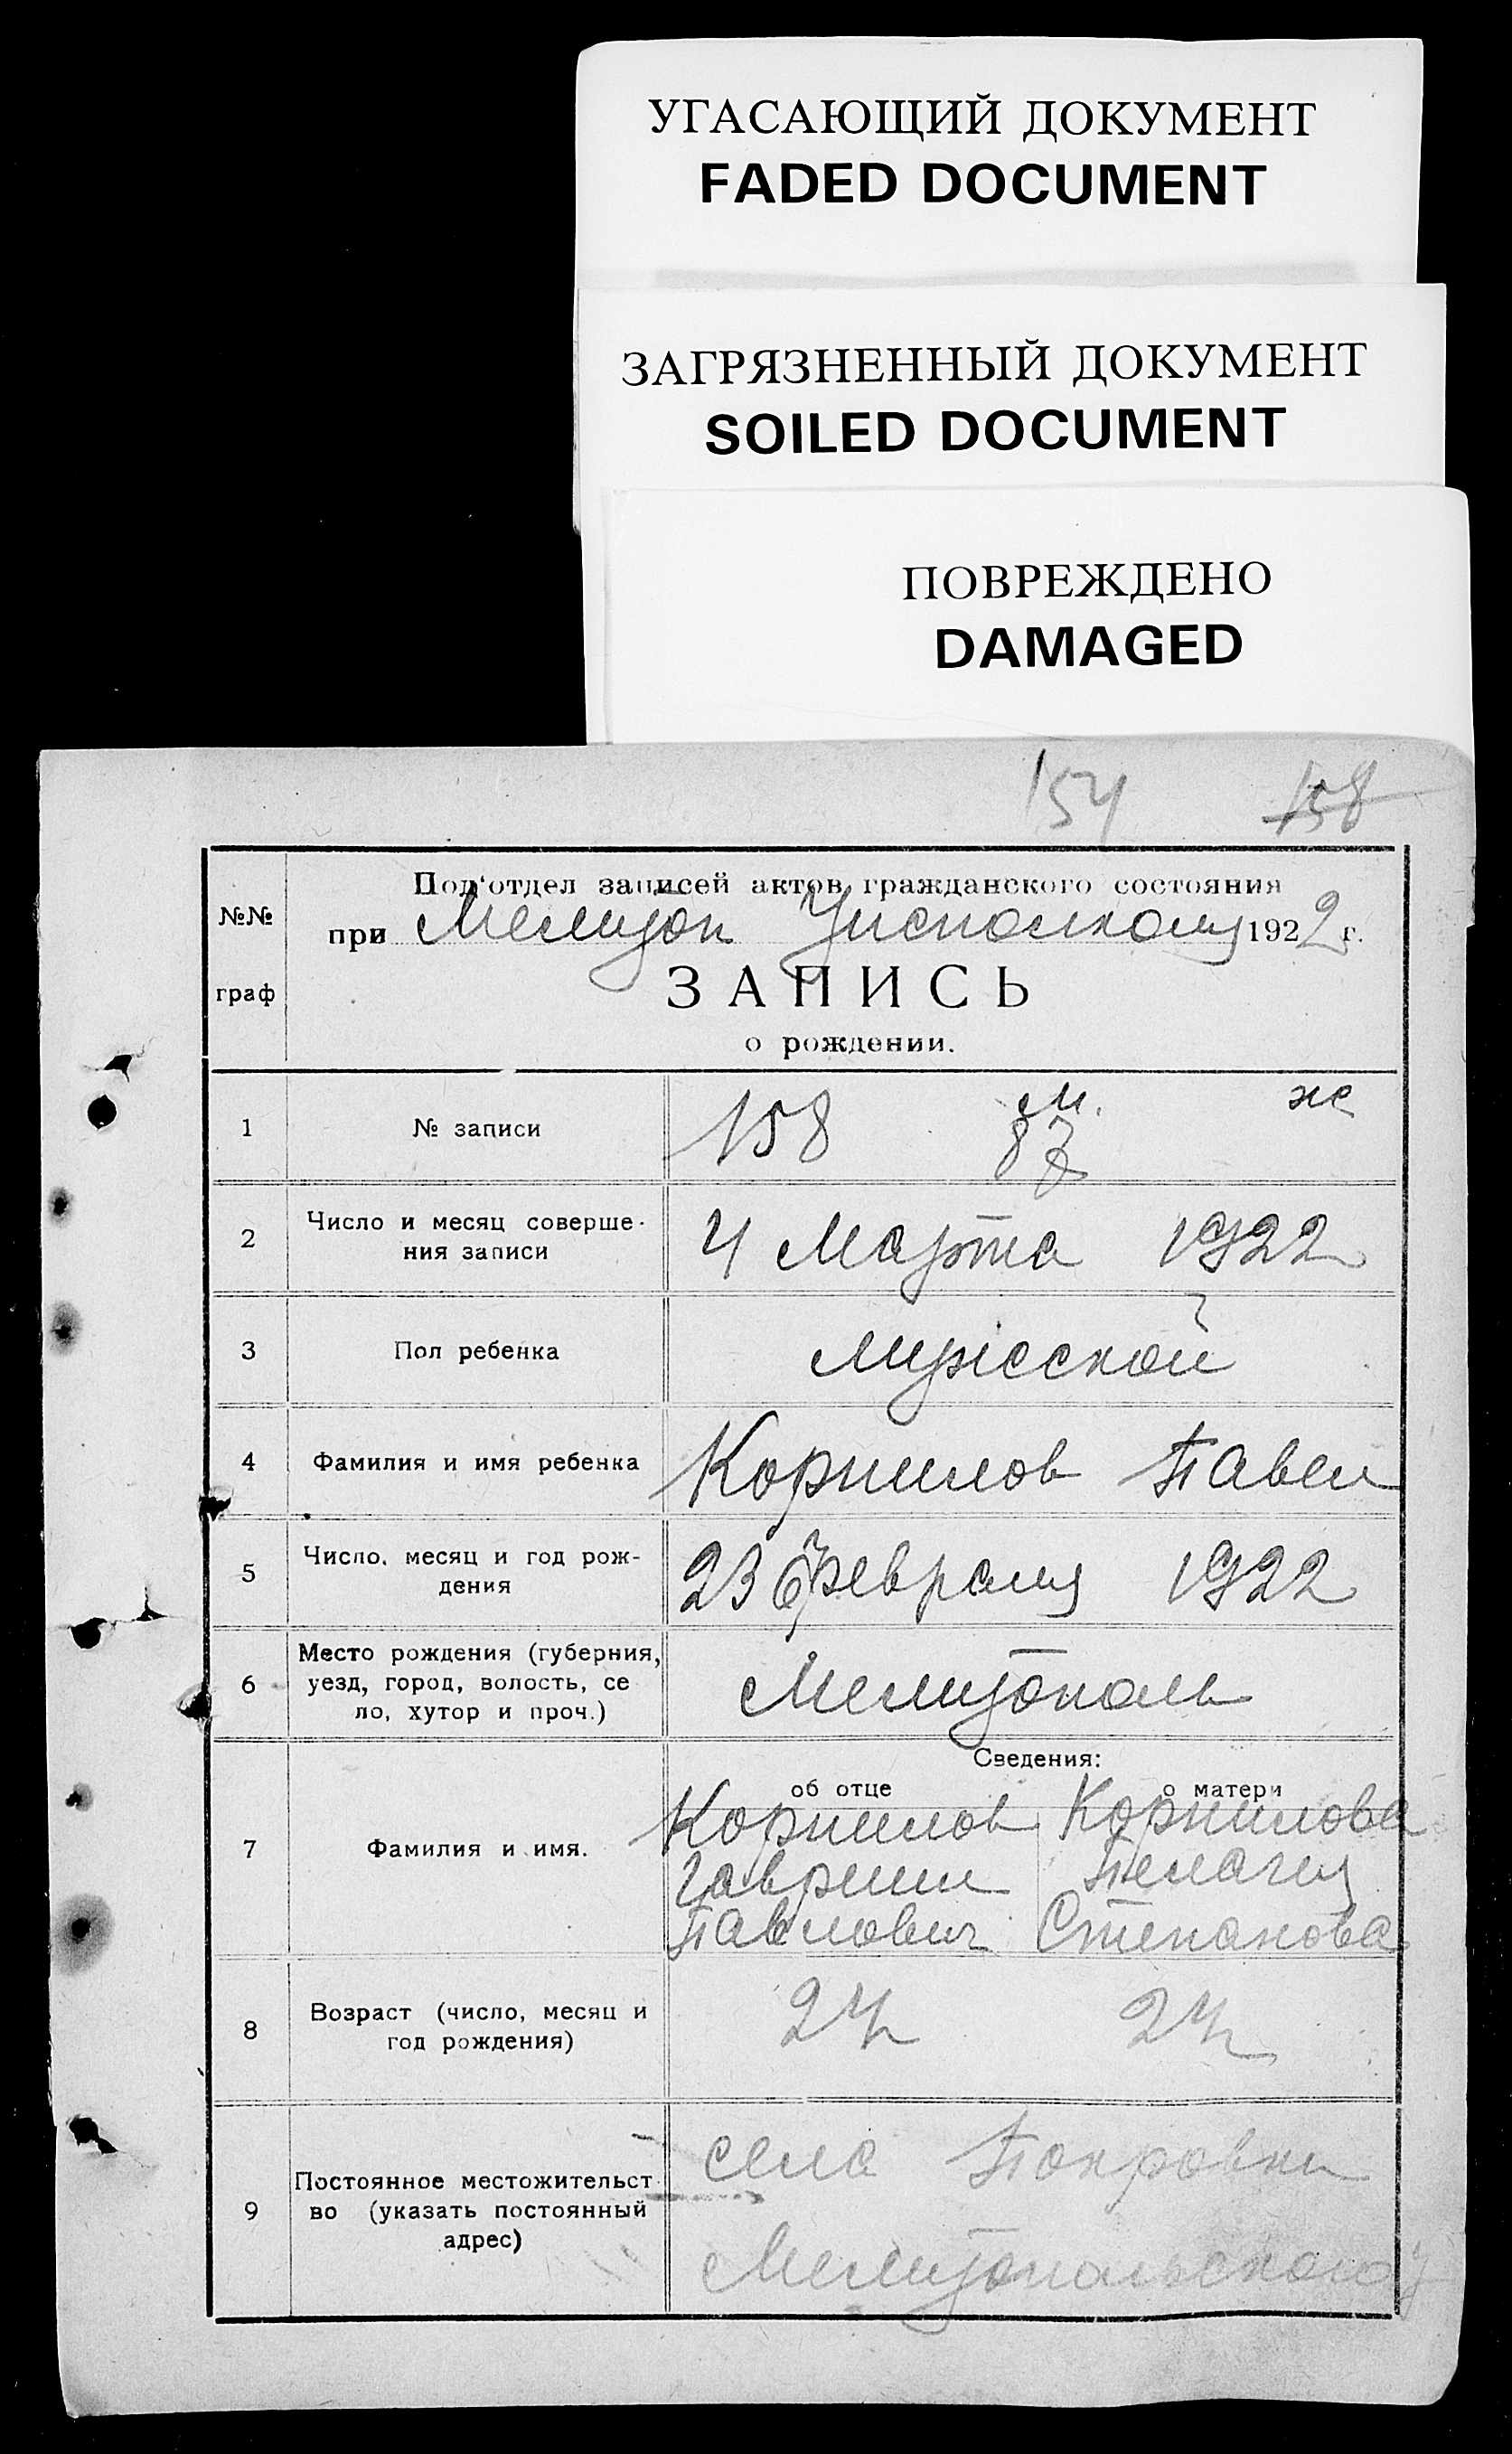 УГАСАЮЩИЙ ДОКУМЕНТ
FADED DOCUMENT
ЗАГРЯЗНЕННЫЙ ДОКУМЕНТ
SOILED DOCUMENT
ПОВРЕЖДЕНО
DAMAGED
154 158
№№ граф
Под‘отдел записей актов гражданского состояния
при Мелитоп Уисполкому 1922 г.
ЗАПИСЬ
о рождении.
1 № записи 158 м. 87 же
2 Число и месяц соверше-
ния записи
4 Марта 1922
3 Пол ребенка мужской
4 Фамилия и имя ребенка Корнилов Павел
5 Число, месяц и год рож-
дения
23 февраля 1922
6 Место рождения (губерния,
уезд, город, волость, се
ло, хутор и проч.)
Мелитополь
Сведения:
об отце о матери
7 Фамилия и имя.
Корнилов Корнилова
Гавриил Пелагия
Павлович Степанова
8 Возраст (число, месяц и
год рождения)
24 24
9 Постоянное местожительст
во (указать постоянный
адрес)
села Покровки
Мелитопольского у